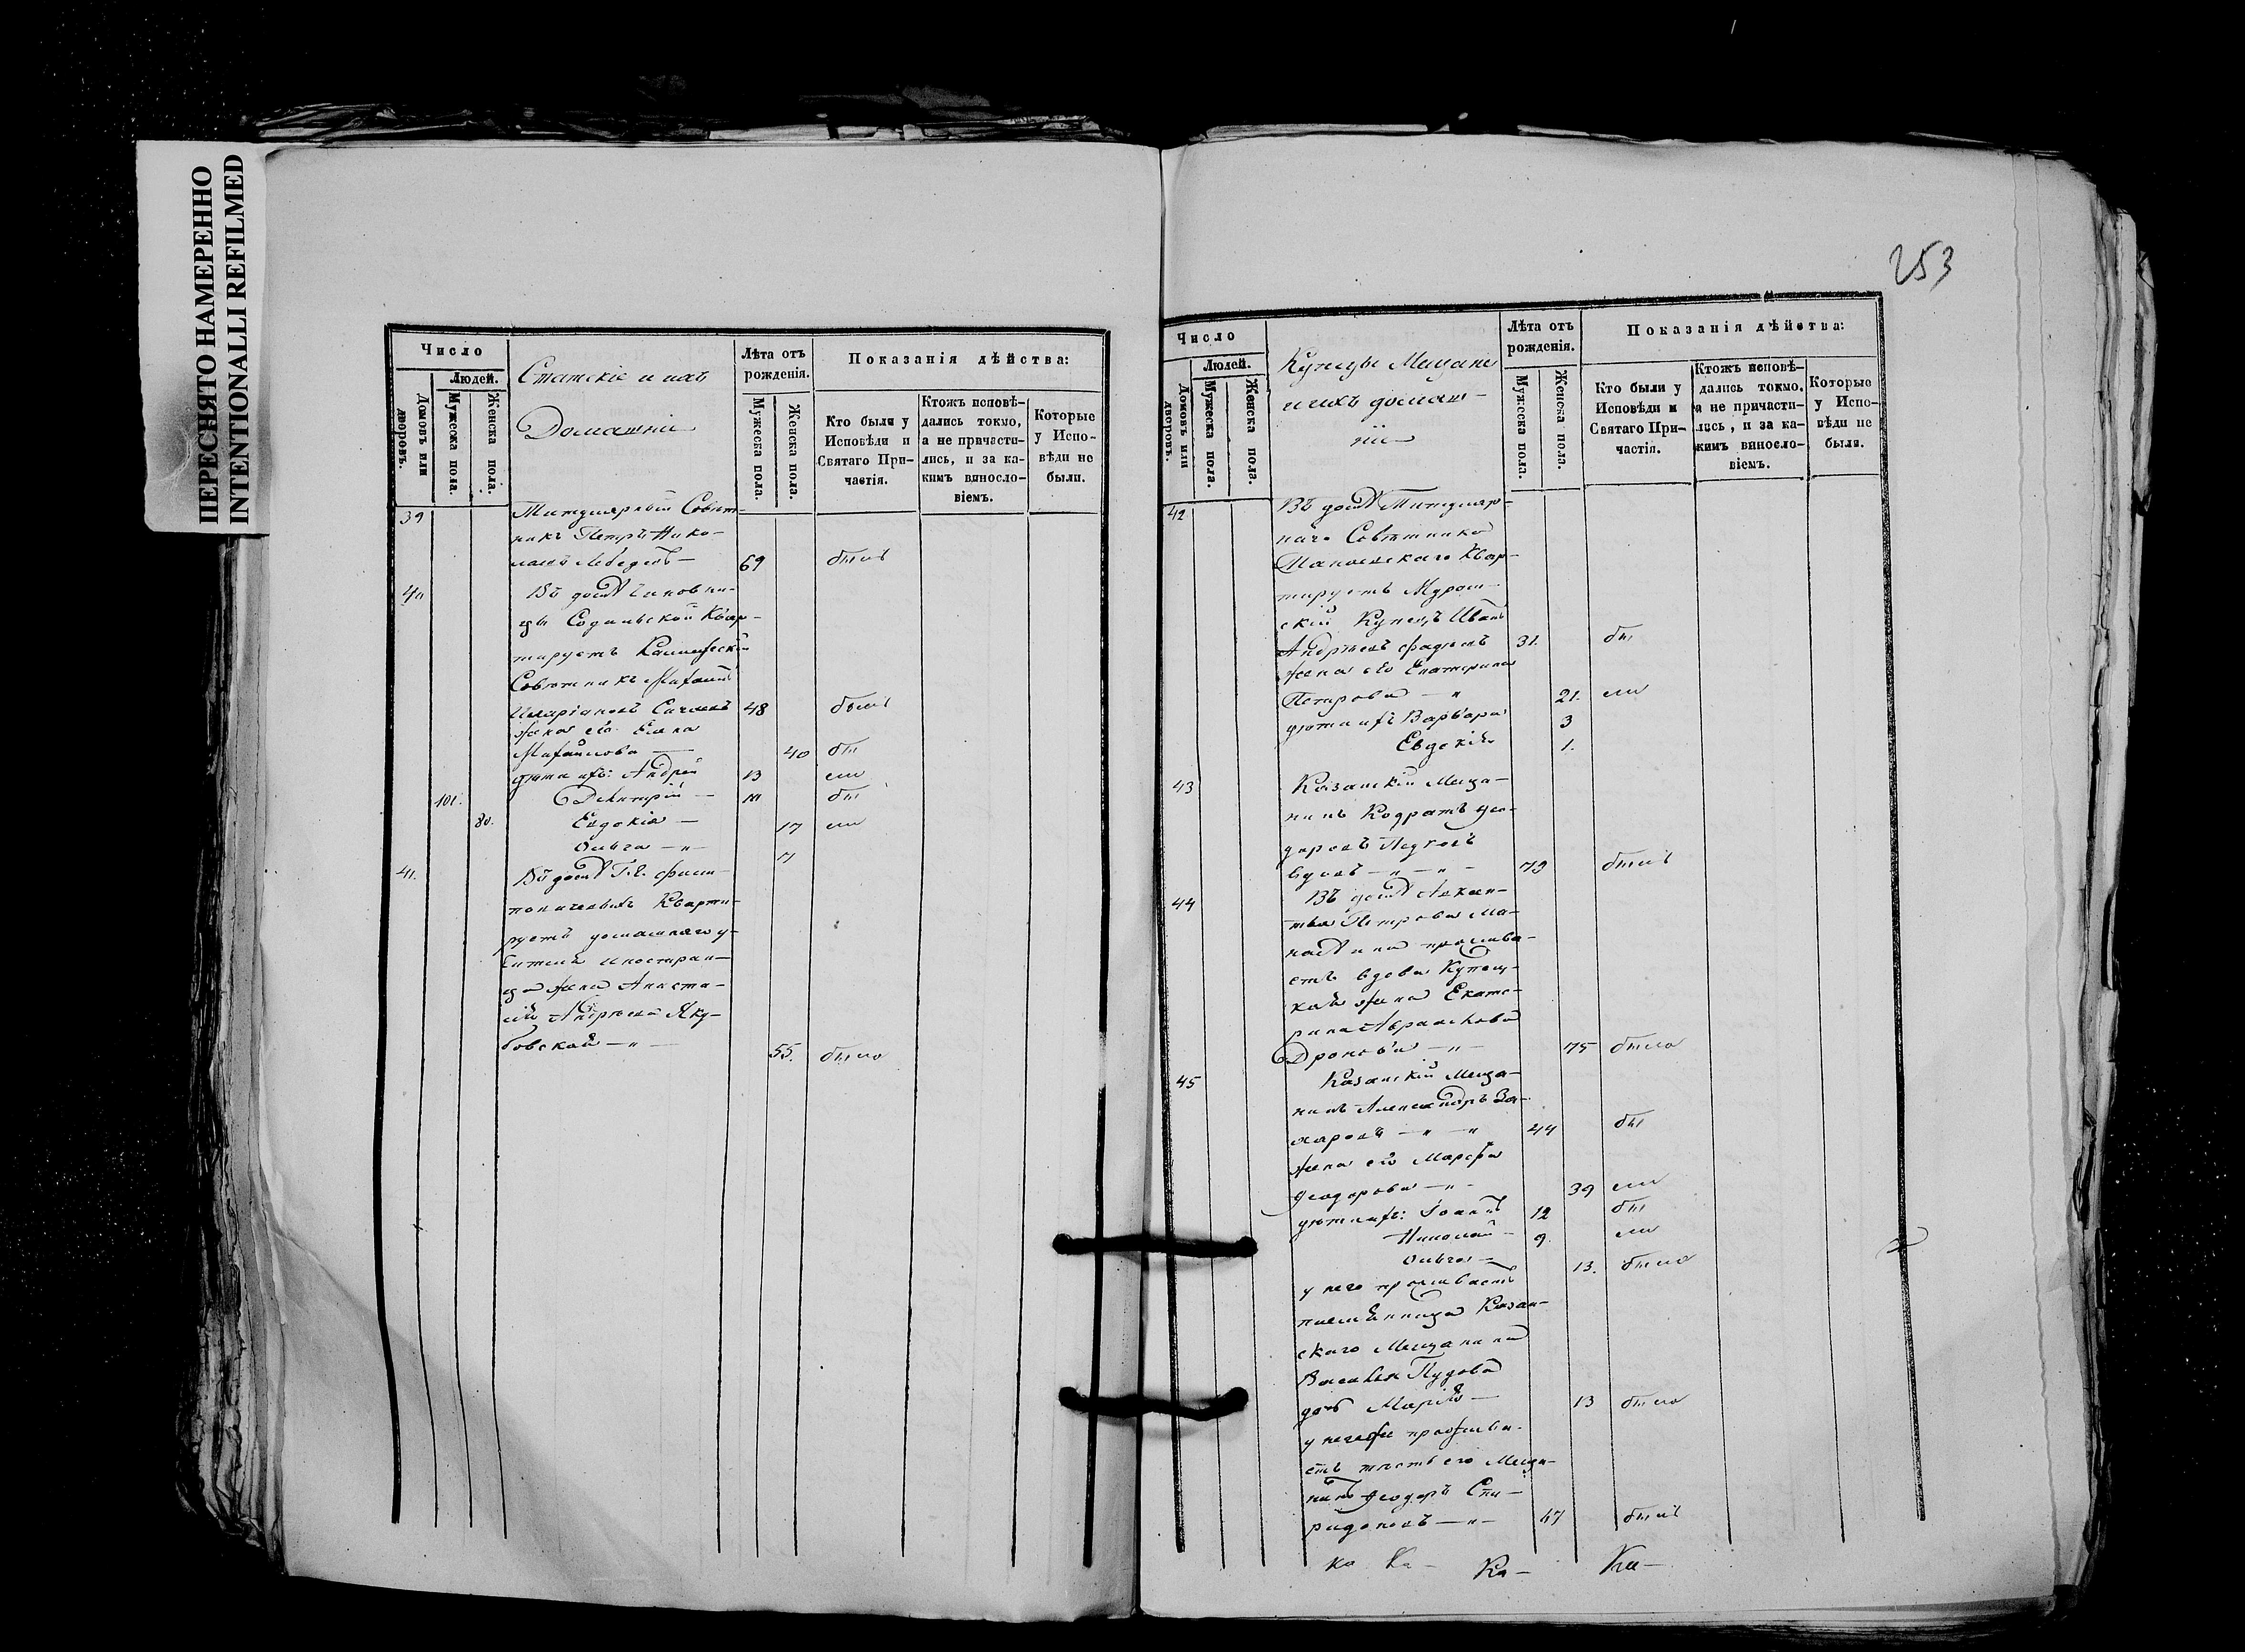 ПЕРЕСНЯТО НАМЕРЕННО
INTENTIONALLI REFILMED
Число
Людей.
Домовъ или дворовъ.
Мужеска пола.
Женска пола.
Статскіе и ихъ
Домашніе
Лѣта отъ рожденія.
Мужеска пола.
Женска пола.
Показанія дѣйства:
Кто были у Исповѣди и Святаго Причастія.
Ктожъ исповѣдались токмо, а не причастились, и за какимъ винословіемъ.
Которые у Исповѣди не были.
39 Титулярный Совѣт-
никъ Петръ Нико-
лаевъ Лебедевъ — 69 былъ
40 Въ домѣ Чиновни-
цы Содальской Квар-
тируетъ Коллежскій
Совѣтникъ Михаилъ
48 былъ
Жена его Елена
Михайлова — 40 бы
дѣти ихъ: Андрей 13 ли
101. Димитрій — бы
80. Евдокія — 17 ли
Ольга — " —
41. Въ домѣ Г-е.
Кварти-
руетъ домашняго у-
чителя иностран-
ца жена Анаста-
сія Андреева Яку-
бовская — " — 55. была
253
Число
Людей.
Домовъ или дворовъ.
Мужеска пола.
Женска пола.
Купцы Мещане
и ихъ домаш-
ніе
Лѣта отъ рожденія.
Мужеска пола.
Женска пола.
Показанія дѣйства:
Кто были у Исповѣди и Святаго Причастія.
Ктожъ исповѣдались токмо, а не причастились, и за какимъ винословіемъ.
Которые у Исповѣди не были.
42 Въ домѣ Титуляр-
наго Совѣтника
Квар-
тируетъ Муром-
скій Купецъ Иванъ
Андреевъ 31. бы
жена его Екатерина
Петрова — " 21. ли
дѣти ихъ Варвара 3
Евдокія 1.
43 Казанскій Меща-
нинъ Кодратъ Ѳео-
доровъ
вдовъ — " — " — 79 былъ
44 Въ домѣ
Петрова
прожива-
етъ вдова Купец-
кая жена Екате-
рина Авраамова
Дронова — " — 75 была
45 Казанскій Меща-
нинъ Александръ За-
харовъ — " — " 44 бы
жена его Марфа
Ѳеодорова — " — 39 ли
дѣти ихъ: Іоаннъ 12 бы
Николай — 9. ли
Ольга — 13. была
у него проживаетъ
племянница Казан-
скаго Мещанина
Василья Пудова
дочь Марія — 13 была
у него же прожива-
етъ тесть его Меща-
нинъ Ѳеодоръ Спи-
ридоновъ — " — 67 былъ
Ка Ка — Ка — Ка —